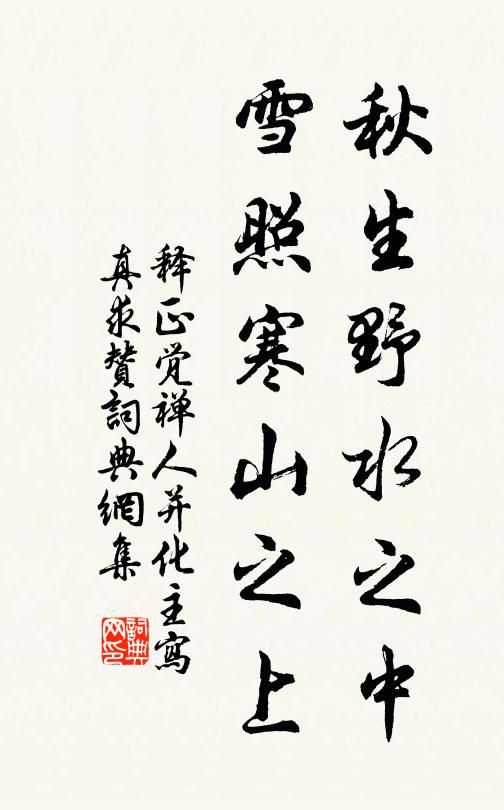 秋生野水之中
雪照寒山之上
释正觉禅人并化主寫
真求赞詞典網集
詞典网印